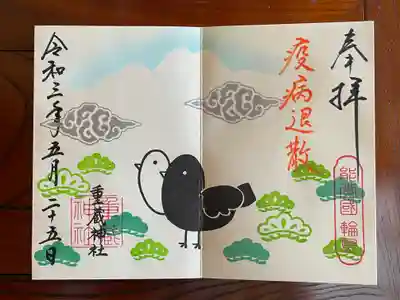 奉拝
疫病退散
能登國輪島
重蔵神社
令和三年五月二十五日